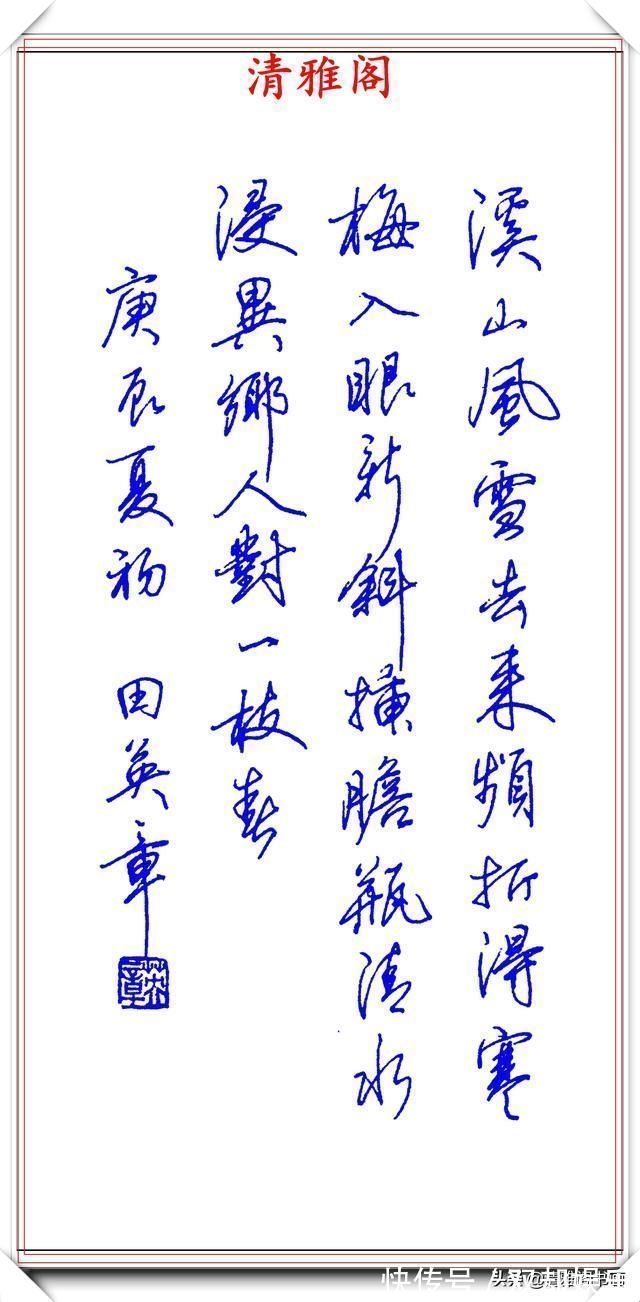 清雅阁
溪山風雪去来頻折得寒
梅入眼新斜插膽瓶清水
浸異鄉人對一枝春
庚辰夏初 田英章
快传号
头条